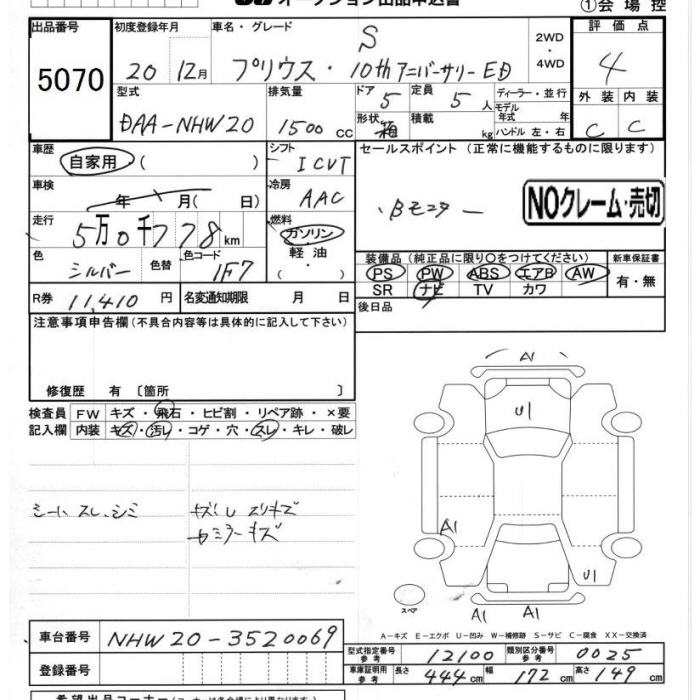 オークション出品申込書
①会場控
出品番号
5070
初度登録年月
20 12月
車名・グレード
S
プリウス・10thアニバーサリーED
2WD・4WD
評価点
4
型式
DAA-NHW20
排気量
1500 cc
ドア 5
定員 5 人
形状 箱
積載 kg
ディーラー・並行
モデル年式 年
ハンドル 左・右
外装 内装
C C
車歴
自家用 ( )
シフト
ICVT
セールスポイント (正常に機能するものに限ります)
車検
年 月( 日)
冷房
AAC
Bモニター
NOクレーム・売切
走行
5万0千778km
燃料
ガソリン
軽油
( )
色
シルバー
色替
色コード
1F7
装備品 (純正品に限り○をつけてください)
新車保証書
PS PW ABS エアB AW
有・無
SR ナビ TV カワ
R券 11,410 円
名変通知期限 月 日
後日品
注意事項申告欄 (不具合内容等は具体的に記入して下さい)
修復歴 有 〔箇所 〕
検査員 FW キズ・飛石・ヒビ割・リペア跡・×要
記入欄 内装 キズ・汚レ・コゲ・穴・スレ・キレ・破レ
シート スレ、シミ
A1
U1
A1
U1
スペア
A1 A1
A-キズ E-エクボ U-凹み W-補修跡 S-サビ C-腐食 XX-交換済
車台番号 NHW20-3520069
型式指定番号 参考 12100
類別区分番号 参考 0025
登録番号
車庫証明用 参考 長さ 444cm 幅 172cm 高さ 149cm
希望出品コーナー